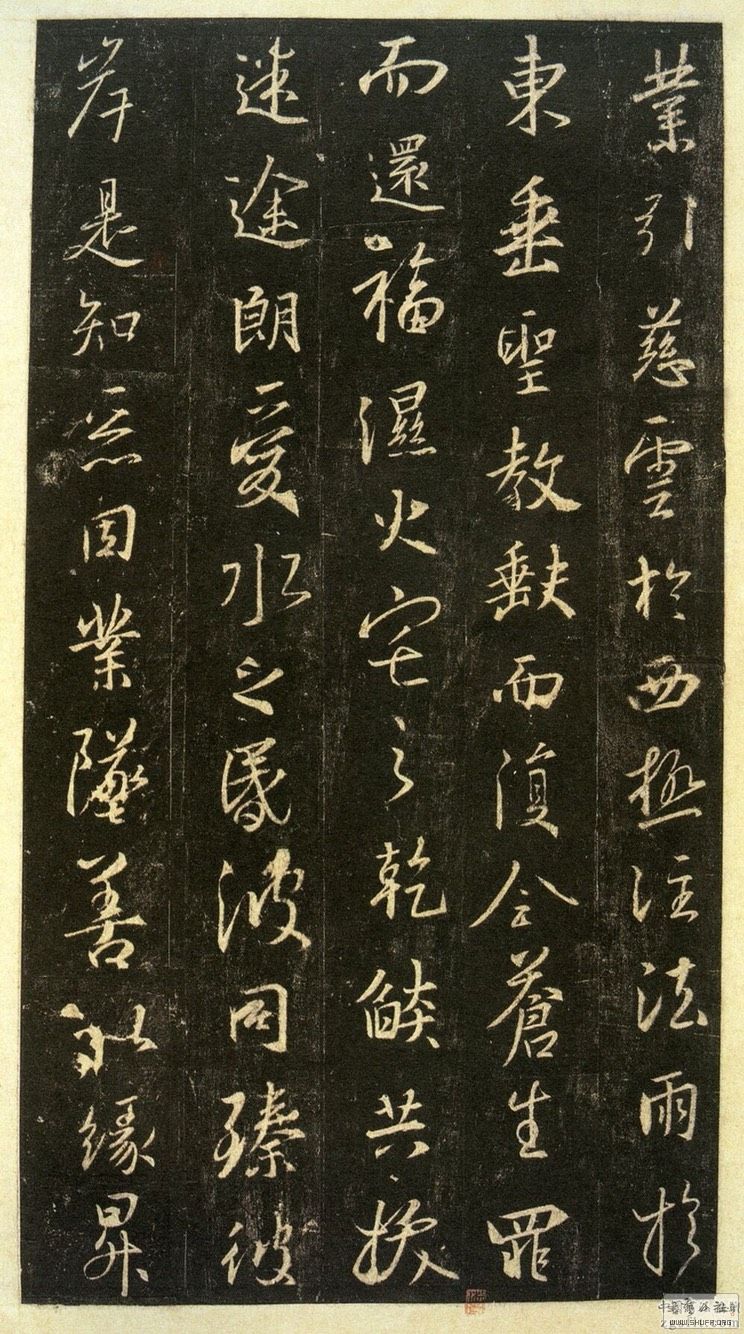 業引慈雲於西極注法雨於
東垂聖教缺而復全蒼生罪
而還福濕火宅之乾燄共拔
迷途朗愛水之昏波同臻彼
岸是知惡因業墜善以緣昇
WWW.SHUFA.ORG